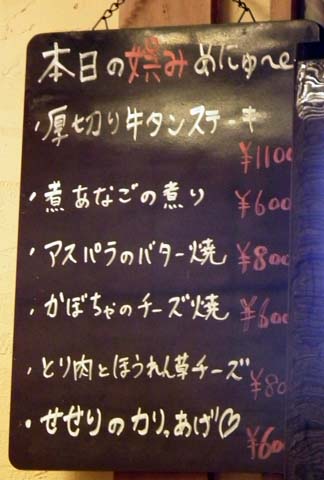 本日の娯み めにゅ〜
・厚切り牛タンステーキ
¥1100
・煮あなごの煮り ¥600
・アスパラのバター焼 ¥800
・かぼちゃのチーズ焼 ¥600
・とり肉とほうれん草チーズ ¥80
・せせりのカリっあげ♡ ¥60